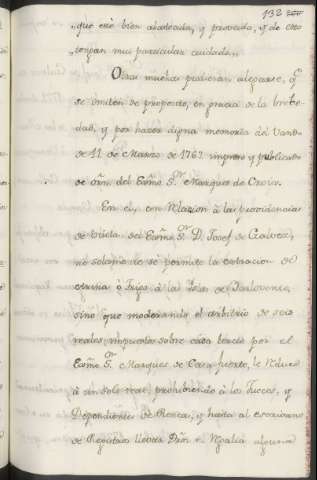 132
que esté bien abastecida, y proveida, y de esto
tengan mui particular cuidado,,
Otras muchas pudieran alegarse, q.e
se omiten de proposito, en gracia de la breve-
dad, y por hacer digna memoria del Vando
de 11 de Marzo de 1767 impreso y publicado
de orn. del Exmo. S.or Marques de Croix.
En el, con relacion à las providencias
de visita del Exmo. S.or D. Josef de Galvez,
no solam.te se permite la extraccion de
Harina ò Trigo à las Islas de Barlovento,
sino que moderando el arbitrio de seis
reales, impuesto sobre cada tercio por el
Exmo. S.or Marques de Casa fuerte, le reduce
à un solo real, prohibiendo à los Jueces, y
Dependientes de Rentas, y hasta al escrivano
de Registros llevar Dro. n. Regalia alguna